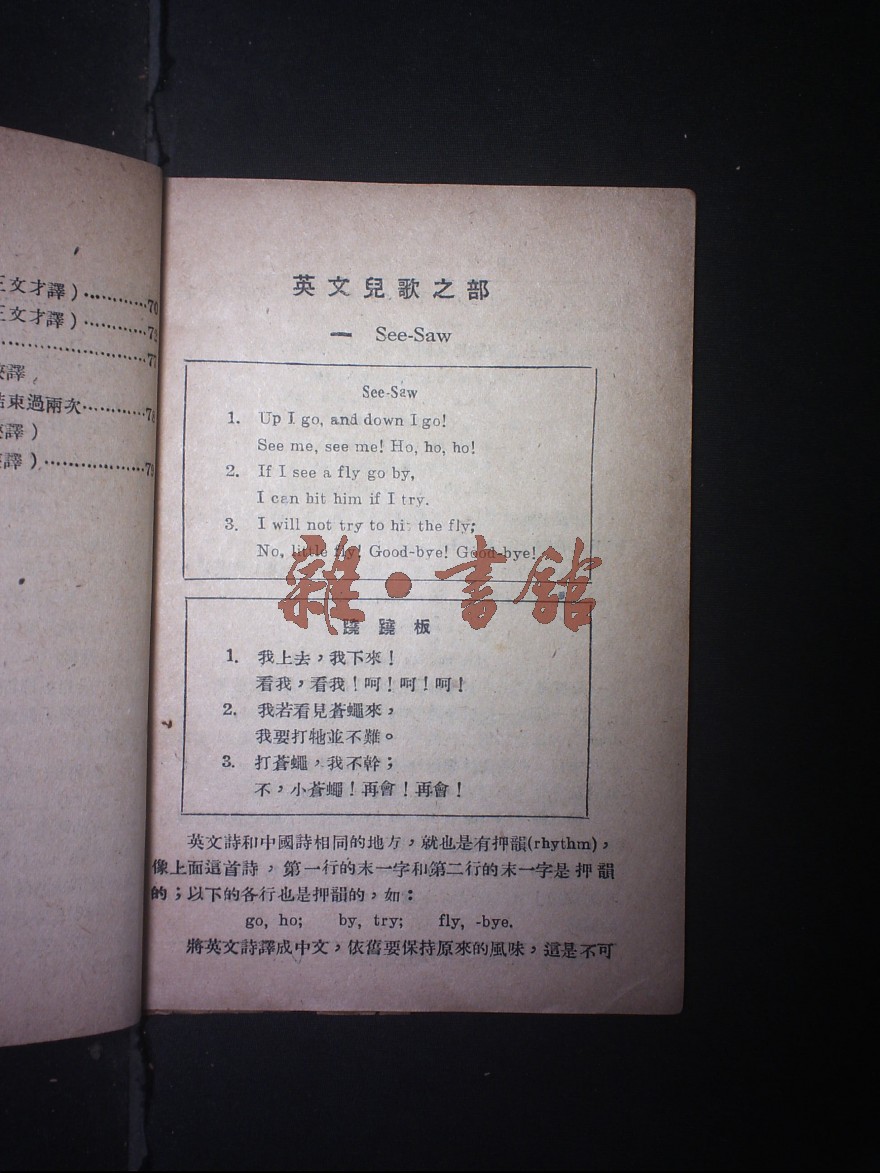 王文才譯)…………70
王文才譯)…………72
…………………77
譯
結束過兩次…………78
譯)
譯)…………………79
英文兒歌之部
一 See-Saw
See-Saw
1. Up I go, and down I go!
See me, see me! Ho, ho, ho!
2. If I see a fly go by,
I can hit him if I try.
3. I will not try to hit the fly;
No, little fly! Good-bye! Good-bye!
雜·書館
蹺蹺板
1. 我上去,我下來!
看我,看我!呵!呵!呵!
2. 我若看見蒼蠅來,
我要打牠並不難。
3. 打蒼蠅,我不幹;
不,小蒼蠅!再會!再會!
英文詩和中國詩相同的地方,就也是有押韻(rhythm),
像上面這首詩,第一行的末一字和第二行的末一字是押韻
的;以下的各行也是押韻的,如:
go, ho; by, try; fly, -bye.
將英文詩譯成中文,依舊要保持原來的風味,這是不可